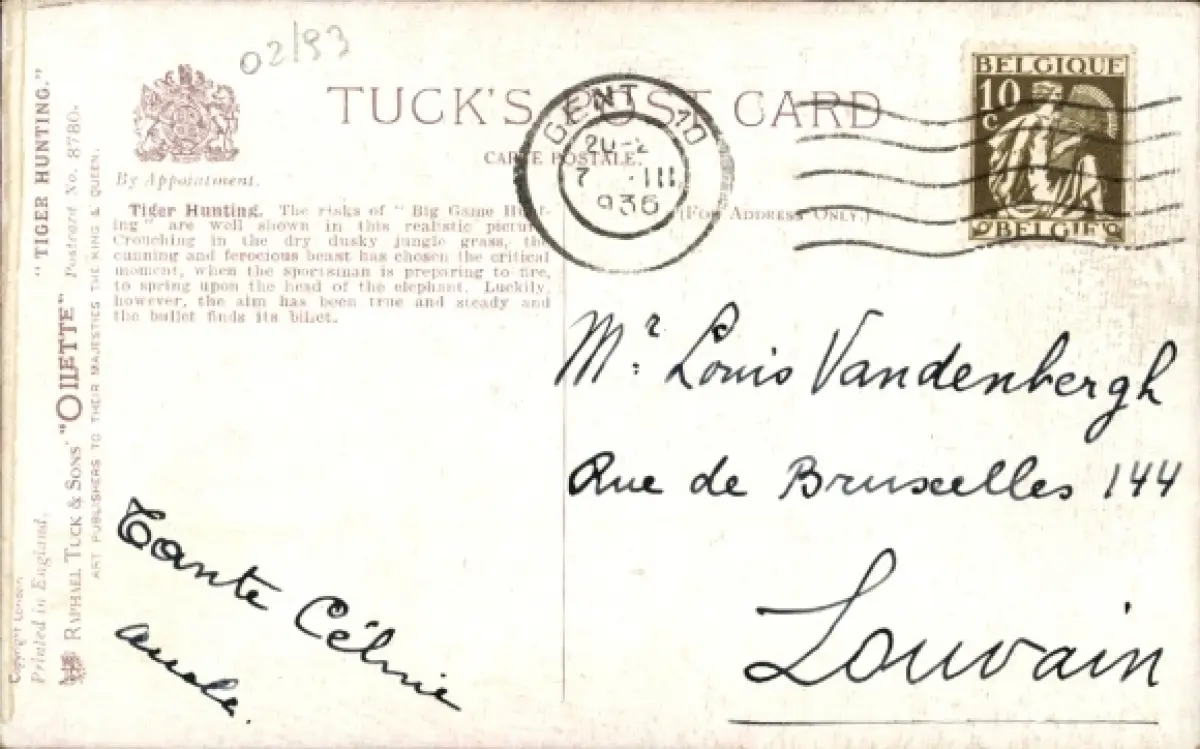 02/93
TUCK'S POST CARD
CARTE POSTALE.
(FOR ADDRESS ONLY.)
By Appointment.
Tiger Hunting. The risks of "Big Game Hunt-
ing" are well shown in this realistic picture.
Crouching in the dry dusky jungle grass, the
cunning and ferocious beast has chosen the critical
moment, when the sportsman is preparing to fire,
to spring upon the head of the elephant. Luckily,
however, the aim has been true and steady and
the bullet finds its billet.
"TIGER HUNTING."
Postcard No. 8780.
RAPHAEL TUCK & SONS' "OILETTE"
ART PUBLISHERS TO THEIR MAJESTIES THE KING & QUEEN.
Copyright London
Printed in England.
GENT 10
7 III
936
BELGIQUE
10
C
BELGIË
Mr. Louis Vandenbergh
Rue de Bruxelles 144
Louvain
Tante Célinie